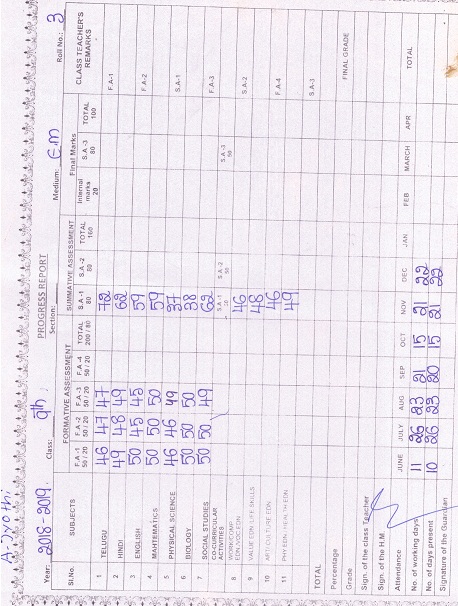 A. Jyothi
PROGRESS REPORT
Year: 2018-2019. Class: 9th. Section: Medium: E.M Roll No.: 3
Sl.No. SUBJECTS FORMATIVE ASSESSMENT SUMMATIVE ASSESSMENT Final Marks CLASS TEACHER'S REMARKS
F.A -1 50 / 20 F.A -2 50 / 20 F.A -3 50 / 20 F.A -4 50 / 20 TOTAL 200 / 80 S.A -1 80 S.A -2 80 TOTAL 160 Internal marks 20 S.A -3 80 TOTAL 100
1 TELUGU 46 47 47 72 F.A-1
2 HINDI 49 48 49 62
3 ENGLISH 50 45 45 59 F.A-2
4 MAHTEMATICS 50 50 50 59
5 PHYSICAL SCIENCE 46 46 49 37 S.A-1
6 BIOLOGY 50 50 50 38
7 SOCIAL STUDIES 50 50 49 62 F.A-3
CO-CURRICULAR ACTIVITIES S.A -1 S.A -3 50 S.A -3 50
8 46 S.A-2
9 VALUE EDN, LIFE SKILLS 48
10 ART/ CULTURE EDN 46 F.A-4
11 PHY.EDN / HEALTH EDN 49
TOTAL S.A-3
Percentage
Grade FINAL GRADE
Sign. of the class Teacher
Sign. of the H.M.
Attendance JUNE JULY AUG SEP OCT NOV DEC JAN FEB MARCH APR TOTAL
No. of working days 11 26 23 21 15 21 22
No. of days present 10 26 23 20 15 21 22
Signature of the Guardian